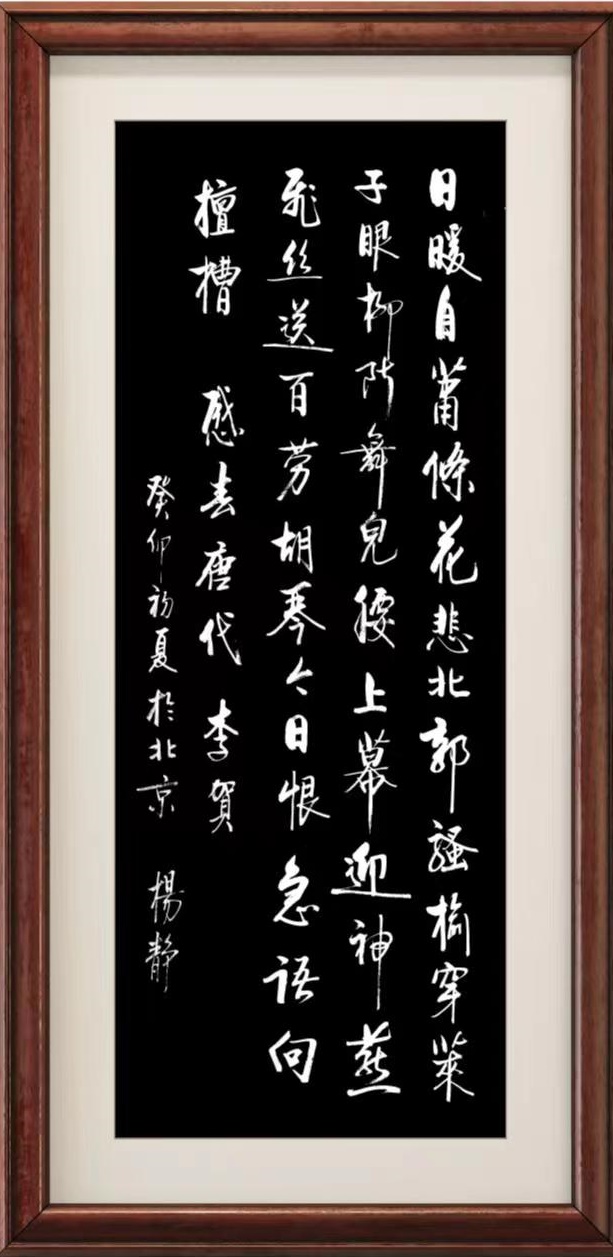 日暖自蕭條花悲北郭騷榆穿萊
子眼柳断舞兒腰上幕迎神燕
飛丝送百劳胡琴今日恨急語向
檀槽 感春唐代 李賀
癸卯初夏於北京 楊静